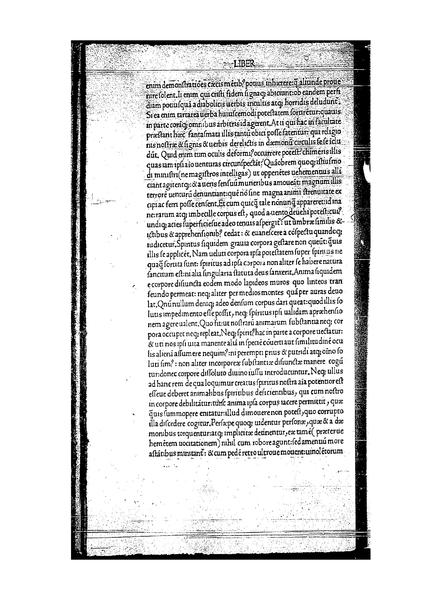 LIBER
enim demonstratiões cæcis mētib⁹ potius inhærere: q̄ aliunde proue
nire solent. Ii enim qui cristi fidem signaq; abiciunt: ob eandem perfi
diam potius quā a diabolicis uerbis incultis atq; horridis deludunt̃.
Si ea enim tartarea uerba huiuscemodi potestatem sortiret̃: quauis
in parte coräq; omnibus arbitris id agerent. At ii qui hac in facultate
præstant hæc fantasmata illis tantū obici posse fatentur: qui religio
nis nostræ & signis & uerbis derelictis in dæmonū circulis se se iclu
dūt. Quid enim tum oculis deformis occurrere potest? chimeris illis
quas iam ipsi aō uenturas circunspectāt? Quäobrem quoq; istiusmo
di ministri (ne magistros intelligas) ut oppetētes uehemētius alli
ciant agitentq; & a ueris sensuū muneribus amoueāt: magnum illis
terrorē uenturū denuntiant: quē nō sine magna animi strenuitate ex
cipi ac ferri posse censent. Et cum quicq̄ tale nonunq̄ apparere: id ina
ne: rarum atq; imbecille corpus est, quod a uento deuehi potest: icu
undiq; acies superficiesue adeo tenuis aspergit̃: ut umbræ similis &
ictibus & apprehensionib⁹ cedat: & euanescere a cōspectu quandoq;
iudicetur. Spiritus siquidem grauia corpora gestare non queūt: quis
illis se applicēt. Nam ueluti corpora ipsa potestatem super spiritus ne
quaq̄ sortita sunt: spiritus ad ipsa corpora non aliter se habere natura
sanctitum est: ni alia singularia statuta deus sanxerit. Anima siquidem
e corpore disiuncta eodem modo lapideos muros quo linteos tran
seundo permeat: neq; aliter per medios montes quā per auras deuo
lat. Qm̄ nullum densū neq; adeo densum corpus dari queat: quod illis so
lutis impedimento esse possit, neq; spiritus ipsi ualidam aprehensio
nem agere ualent. Quo fit ut nostrarū animarum substantia neq; cor
pora occupet neq; repleat. Neq; spirit⁹ hac in parte a corpore uectatur:
& uti nos ipsi uita manente aliā in speciē cōuerti aut similitudinē ocu
lis alienā assumere nequim⁹: ni perempti prius & putridi atq; oīno so
luti sim⁹: non aliter incorporeæ substantiæ disiunctæ manere cogū
tur: donec corpore dissoluto diuino iussu introducuntur. Neq; ullus
ad hanc rem de qua loquimur creatus spiritus nostra aīa potentior est
esse ue deberet animalibus spiritibus deficientibus, qui cum nostro
in corpore debilitātur: nusq̄ anima ipsa corpus tacere permittit, quæ
q̄uis summopere enitatur: illud dimouere non potest, quo corrupto
illa discedere cogitur. Persæpe quoq; uidentur personæ, quæ & a dæ
monibus torquentur: atq; implicitæ detinentur, ex tamē (præter ue
hemētem uocitationem) nihil cum robore agunt: sed amentiū more
astātibus minitant̃: & cum pedē retro ultroue mouent: uinolētorum